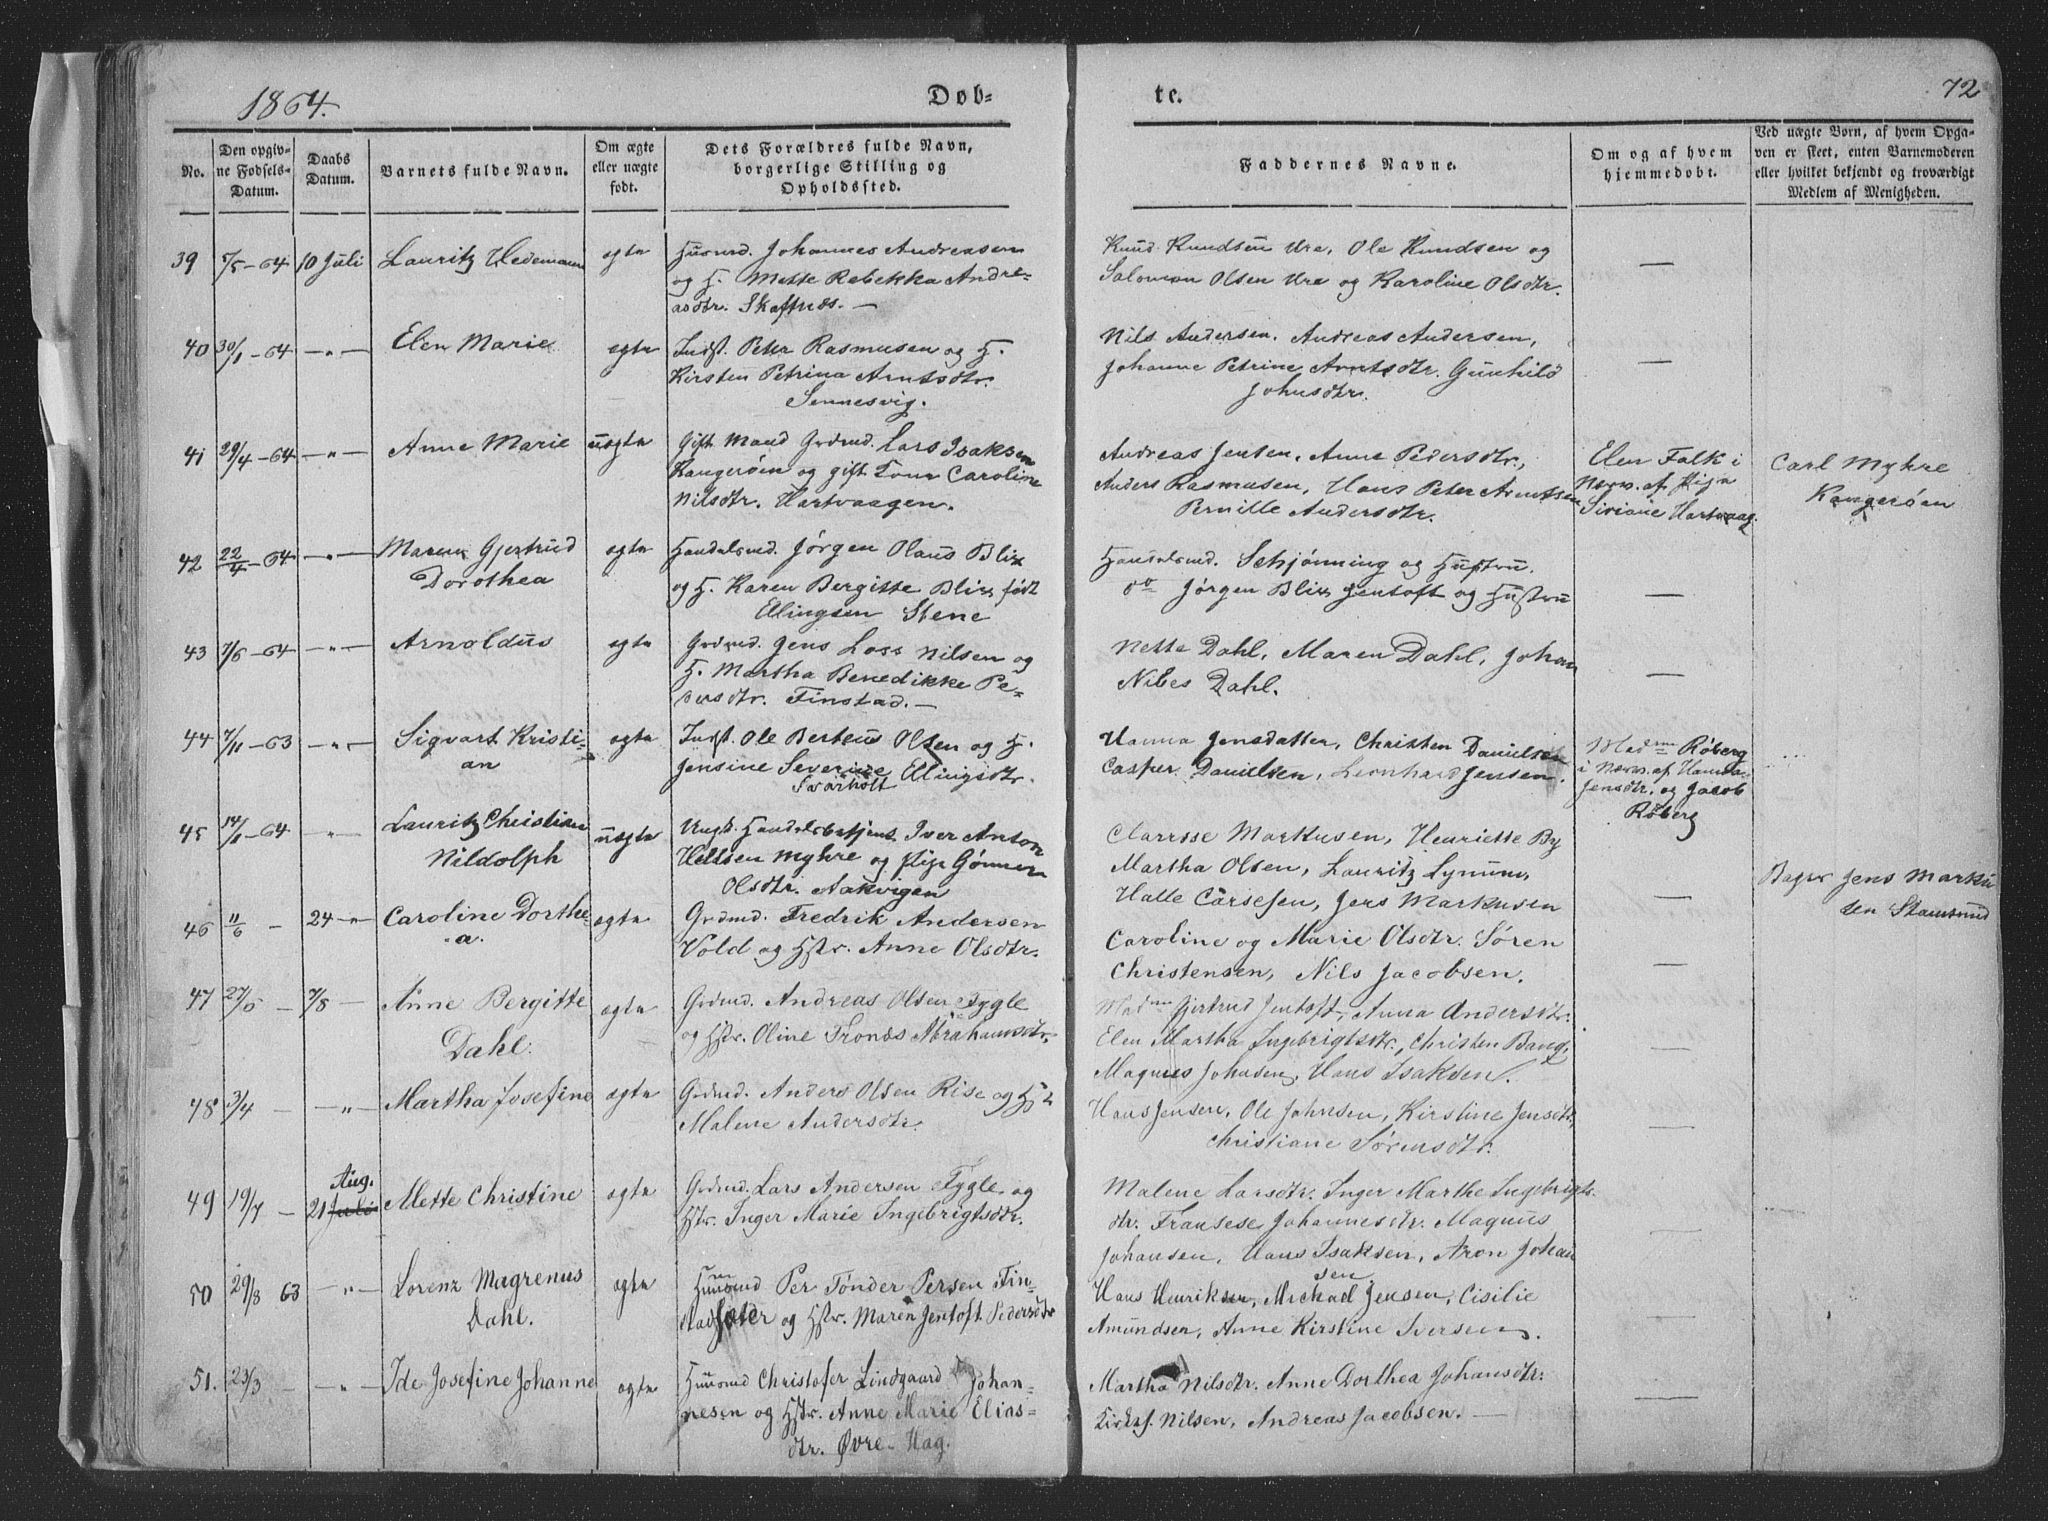 1864.
Døb-
te.
72
No.
Den opgiv-
ne Fødsels-
Datum.
Daabs
Datum.
Barnets fulde Navn.
Om ægte
eller uægte
født.
Dets Forældres fulde Navn,
borgerlige Stilling og
Opholdssted.
Faddernes Navne.
Om og af hvem
hjemmedøbt.
Ved uægte Børn, af hvem Opga-
ven er skeet, enten Barnemoderen
eller hvilket bekjendt og troværdigt
Medlem af Menigheden.
39 7/5-64 10 Juli Lauritz Hedemann ægte Husmd. Johannes Andreasen
og H. Mette Rebekka Andre-
asdtr. Skaftnæs. —
Knud Knudsen Ure, Ole Knudsen og
Salomon Olsen Ure og Karoline Olsdtr.
—
40 30/1-64 —„— Elen Marie ægte Indst. Peter Rasmusen og H.
Kirsten Petrina Arntsdtr.
Sennesvig.
Nils Andersen, Andreas Andersen,
Johanne Petrine Arntsdtr. Gunhild
Johnsdtr.
—
41 29/4-64 —„— Anne Marie uægte Gift Mand Grdmd. Lars Isaksen
Kangerøen og gift Kone Caroline
Nilsdtr. Hartvaagen.
Andreas Jensen, Anne Pedersdtr.,
Anders Rasmusen, Hans Peter Arntsen
Pernille Andersdtr.
Elen Falk i
Nærv. af Pige
Siviane Hartvaag.
Carl Myhre
Kangerøen
42 22/4-64 —„— Maren Gjertrud
Dorothea
ægte Handelsmd. Jørgen Olaus Blix
og H. Karen Bergitte Blix født
Ellingsen Stene
Handelsmd. Schjønning og Hustru.
do Jørgen Blix Jentoft og Hustru
—
43 7/6-64 —„— Arnoldus ægte Grdmd. Jens Loss Nilsen og
H. Martha Benedikke Pe-
dersdtr. Finstad. —
Nette Dahl, Maren Dahl, Johan
Nibes Dahl.
—
44 7/11-63 —„— Sigvart Kristi-
an
ægte Indst. Ole Berteus Olsen og H.
Jensine Severine Ellingsdtr.
Svarholt
Hanna Jensdatter, Christen Danielsen
Casper Danielsen, Leonhard Jensen.
Madme Røberg
i Nærv. af Hanna
Jensdtr. og Jacob
Røberg
45 14/1-64 —„— Lauritz Christian
Nildolph
uægte Ungk. Handelsbetjent Iver Anton
Heltsen Myhre og Pige Gønner
Olsdtr. Aakvigen
Clarisse Markusen, Henriette By
Martha Olsen, Lauritz Lynum,
Halle Carsesen, Jens Markusen
—
Bager Jens Marku
sen Stamsund
46 11/6 - 24 —„— Caroline Dorthe-
a.
ægte Grdmd. Fredrik Andersen
Vold og Hstr. Anne Olsdtr.
Caroline og Marie Olsdtr. Søren
Christensen, Nils Jacobsen.
—
47 27/6 - 7/8 — Anne Bergitte
Dahl.
ægte Grdmd. Andreas Olsen Fygle
og Hstr. Oline Tronæs Abrahamsdtr.
Madme Gjertrud Jentoft, Anna Andersdtr.
Elen Martha Ingebrigtsdtr., Christen Bang,
Magnus Johnsen, Hans Isaksen.
—
48 3/4 - —„— Martha Josefine ægte Grdmd. Anders Olsen Rise og H
Malene Andersdtr.
Hans Jensen, Ole Johnsen, Kirstine Jensdtr.,
Christiane Sørensdtr.
—
49 19/7 - 21 Juli Aug. Mette Christine ægte Grdmd. Lars Andersen Fygle og
Hstr. Inger Marie Ingebrigtsdtr.
Malene Larsdtr. Inger Marthe Ingebrigts-
dtr. Fransese Johannesdtr. Magnus
Johansen, Hans Isaksen, Aron Johan
sen
50 29/8 63 —„— Lorenz Magrenus
Dahl.
ægte Huusmd Per Tønder Persen Fin-
stadsæter og Hstr. Maren Jentoft Pedersdtr
Hans Henriksen, Michael Jensen, Cisilie
Amundsen, Anne Kirstine Iversen.
—
51. 23/3 - —„— Ide Josefine Johanne ægte Huusmd Christofer Lindgaard Johan-
nesen og Hstr. Anne Marie Elias-
dtr. Øvre-Hag.
Martha Nilsdtr. Anne Dorthea Johansdtr.
Kirks. Nilsen, Andreas Jacobsen. —
—